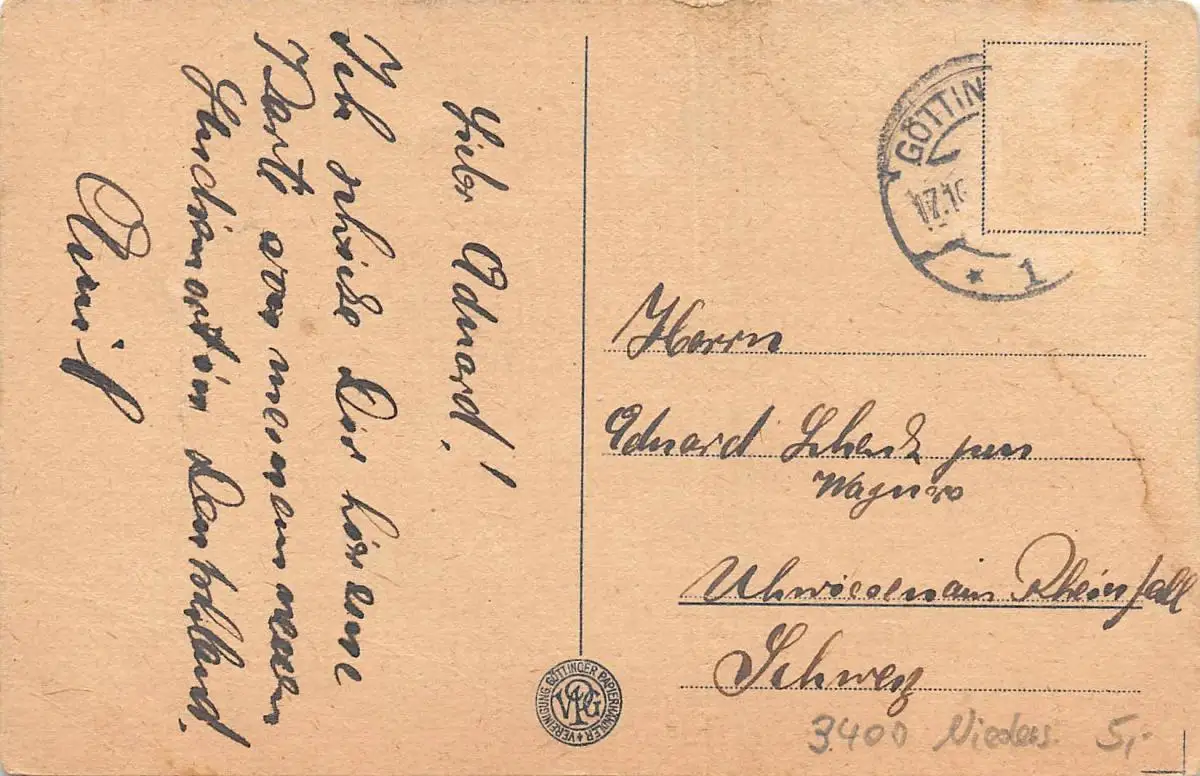 Lieber Eduard!
Ich schicke Dir hier eine
Karte von meinem neuen
Studienort in Deutschland.
Emil
GÖTTIN
17.10
* 1
Herrn
Eduard Schenk jun
Wagners
Uhwiesen am Rheinfall
Schweiz
VEREINIGUNG GÖTTINGER PAPIERHÄNDLER
VGP
3400 Nieders. 5,-